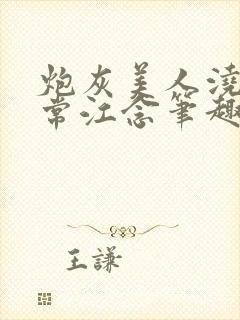 炮灰美人浇
常江念笔趣
王謙